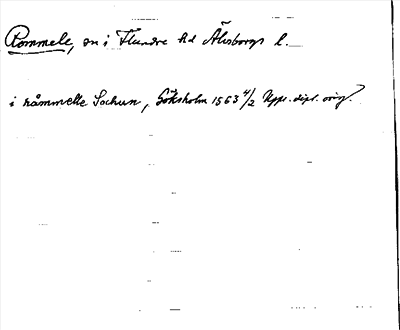 Rommele, sn i Flundre hd Älvsborgs l.
i råmmelle Sochun, 1563 4/2 Upps. dipl. orig.